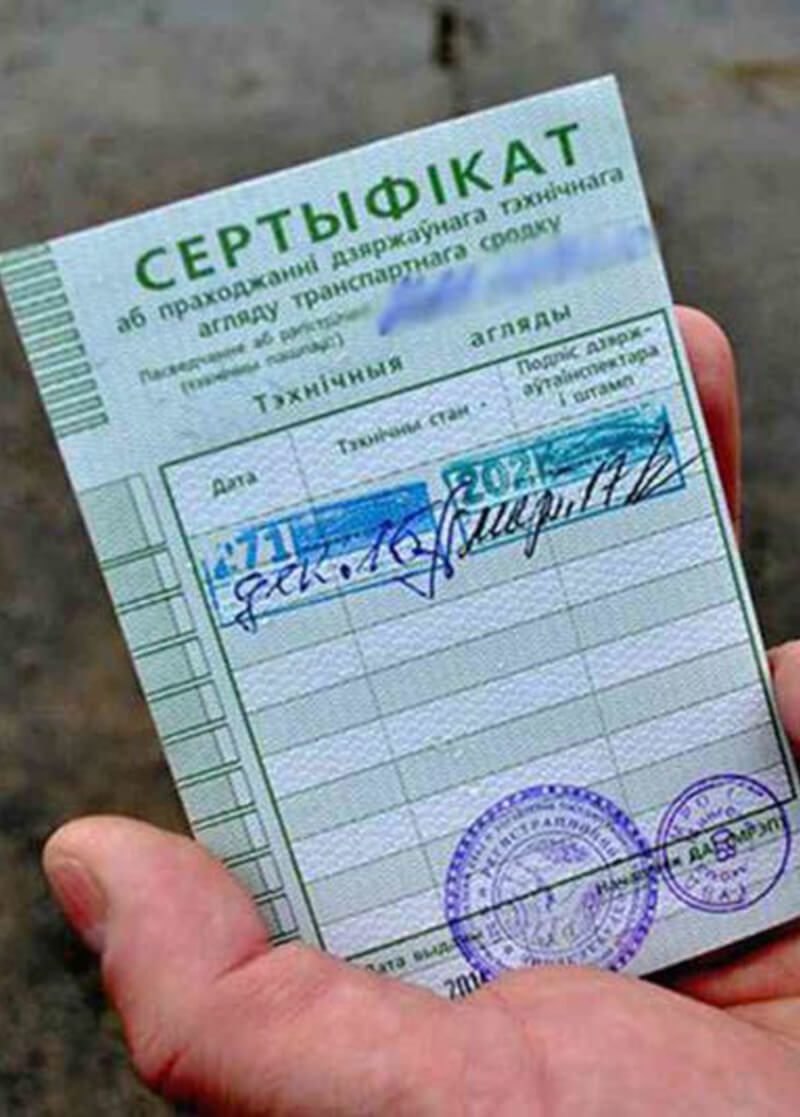 СЕРТЫФІКАТ
аб праходжанні дзяржаўнага тэхнічнага
агляду транспартнага сродку
Пасведчанне аб рэгістрацыі
(тэхнічны пашпарт)
Тэхнічныя агляды
Дата
Тэхнічны стан
Подпіс дзярж-
аўтаінспектара
і штамп
271
202
дек. 16
мар. 17
РЕГИСТРАЦИОННЫЙ
Начальнік ДАІ МРЭП
Дата выдачы
201